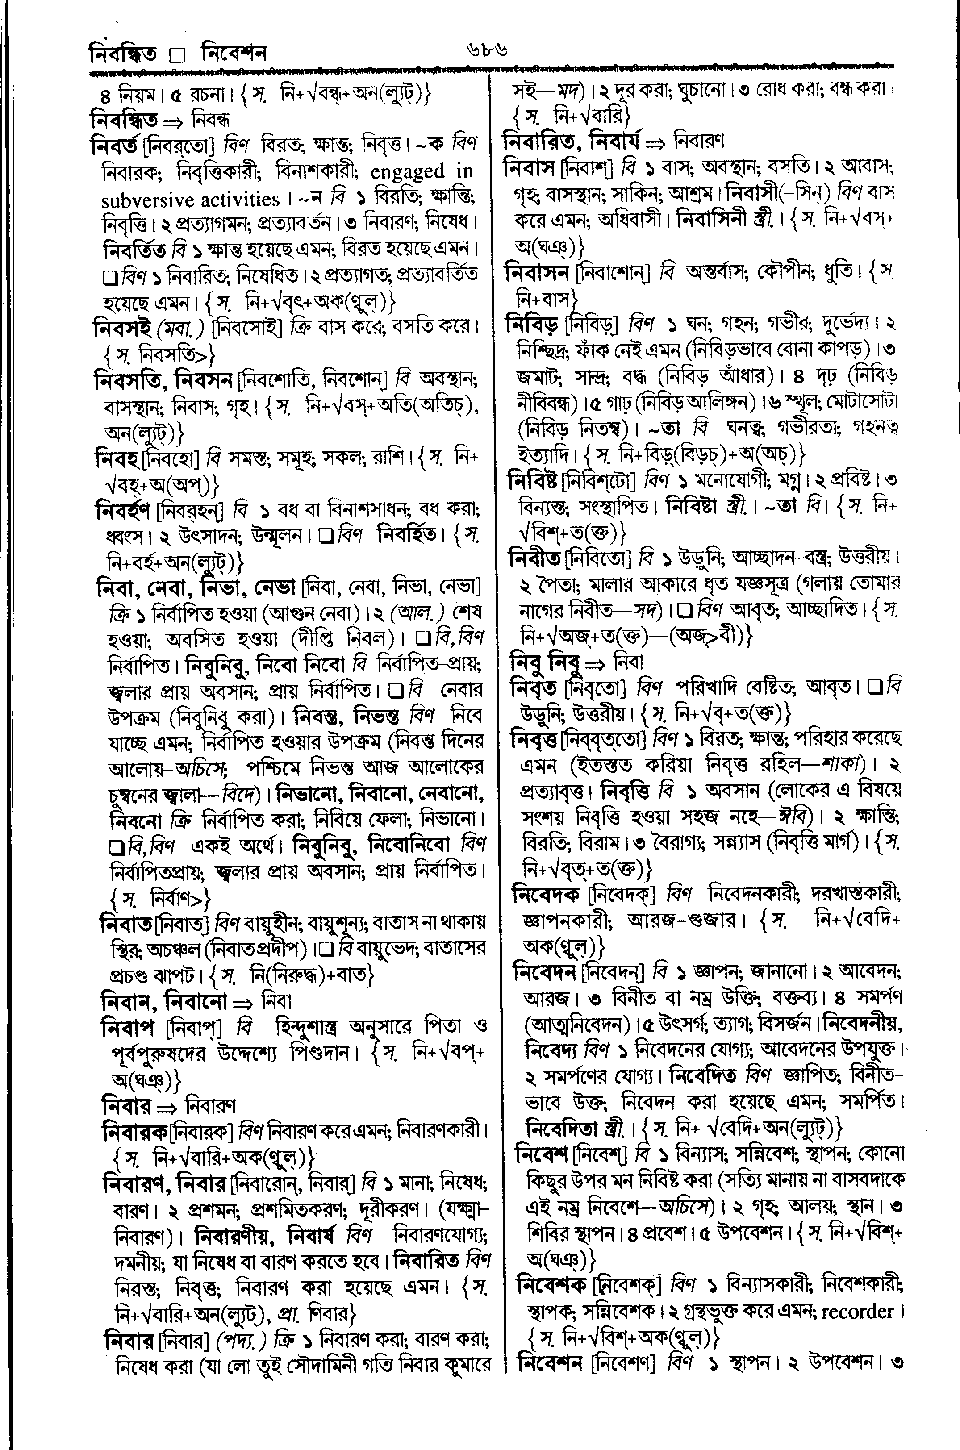 নিবন্ধিত □ নিবেশন
৬৮৬
৪ নিয়ম। ৫ রচনা। {স. নি+√বন্ধ্+অন(ল্যুট)}
নিবন্ধিত ⇒ নিবন্ধ
নিবর্ত [নিবর্‌তো] বিণ বিরত; ক্ষান্ত; নিবৃত্ত। ~ক বিণ
নিবারক; নিবৃত্তিকারী; বিনাশকারী; engaged in
subversive activities । ~ন বি ১ বিরতি; ক্ষান্তি;
নিবৃত্তি। ২ প্রত্যাগমন; প্রত্যাবর্তন। ৩ নিবারণ; নিষেধ।
নিবর্তিত বি ১ ক্ষান্ত হয়েছে এমন; বিরত হয়েছে এমন।
□ বিণ ১ নিবারিত; নিষেধিত। ২ প্রত্যাগত; প্রত্যাবর্তিত
হয়েছে এমন। {স. নি+√বৃৎ+অক(ণ্বুল্)}
নিবসই (মবা.) [নিবসোই] ক্রি বাস করে; বসতি করে।
{স. নিবসতি>}
নিবসতি, নিবসন [নিবশোতি, নিবশোন্] বি অবস্থান;
বাসস্থান; নিবাস; গৃহ। {স. নি+√বস্+অতি(অতিচ্),
অন(ল্যুট)}
নিবহ [নিবহো] বি সমস্ত; সমূহ; সকল; রাশি। {স. নি+
√বহ্+অ(অপ্)}
নিবর্হণ [নিবর্‌হন্] বি ১ বধ বা বিনাশসাধন; বধ করা;
ধ্বংস। ২ উৎসাদন; উন্মূলন। □ বিণ নিবর্হিত। {স.
নি+বর্হ+অন(ল্যুট)}
নিবা, নেবা, নিভা, নেভা [নিবা, নেবা, নিভা, নেভা]
ক্রি ১ নির্বাপিত হওয়া (আগুন নেবা)। ২ (আল.) শেষ
হওয়া; অবসিত হওয়া (দীপ্তি নিবল)। □ বি,বিণ
নির্বাপিত। নিবুনিবু, নিবো নিবো বি নির্বাপিত-প্রায়;
জ্বলার প্রায় অবসান; প্রায় নির্বাপিত। □ বি নেবার
উপক্রম (নিবুনিবু করা)। নিবন্ত, নিভন্ত বিণ নিবে
যাচ্ছে এমন; নির্বাপিত হওয়ার উপক্রম (নিবন্ত দিনের
আলোয়—অচিসে; পশ্চিমে নিভন্ত আজ আলোকের
চুম্বনের জ্বালা—বিদে)। নিভানো, নিবানো, নেবানো,
নিবনো ক্রি নির্বাপিত করা; নিবিয়ে ফেলা; নিভানো।
□ বি,বিণ একই অর্থে। নিবুনিবু, নিবোনিবো বিণ
নির্বাপিতপ্রায়; জ্বলার প্রায় অবসান; প্রায় নির্বাপিত।
{স. নির্বাণ>}
নিবাত [নিবাত্] বিণ বায়ুহীন; বায়ুশূন্য; বাতাস না থাকায়
স্থির; অচঞ্চল (নিবাত প্রদীপ)। □ বি বায়ুভেদ; বাতাসের
প্রচণ্ড ঝাপট। {স. নি(নিরুদ্ধ)+বাত}
নিবান, নিবানো ⇒ নিবা
নিবাপ [নিবাপ্] বি হিন্দুশাস্ত্র অনুসারে পিতা ও
পূর্বপুরুষদের উদ্দেশ্যে পিণ্ডদান। {স. নি+√বপ্+
অ(ঘঞ্)}
নিবার ⇒ নিবারণ
নিবারক [নিবারক্] বিণ নিবারণ করে এমন; নিবারণকারী।
{স. নি+√বারি+অক(ণ্বুল্)}
নিবারণ, নিবার [নিবারোন্, নিবার্] বি ১ মানা; নিষেধ;
বারণ। ২ প্রশমন; প্রশমিতকরণ; দূরীকরণ। (যক্ষ্মা-
নিবারণ)। নিবারণীয়, নিবার্য বিণ নিবারণযোগ্য;
দমনীয়; যা নিষেধ বা বারণ করতে হবে। নিবারিত বিণ
নিরস্ত; নিবৃত্ত; নিবারণ করা হয়েছে এমন। {স.
নি+√বারি+অন(ল্যুট), প্রা. ণিবার}
নিবার [নিবার] (পদ্য.) ক্রি ১ নিবারণ করা; বারণ করা;
নিষেধ করা (যা লো তুই সৌদামিনী গতি নিবার কুমারে
সই—মদ)। ২ দূর করা; ঘুচানো। ৩ রোধ করা; বন্ধ করা।
{স. নি+√বারি}
নিবারিত, নিবার্য ⇒ নিবারণ
নিবাস [নিবাশ্] বি ১ বাস; অবস্থান; বসতি। ২ আবাস;
গৃহ; বাসস্থান; সাকিন; আশ্রম। নিবাসী(-সিন্) বিণ বাস
করে এমন; অধিবাসী। নিবাসিনী স্ত্রী.। {স. নি+√বস্+
অ(ঘঞ্)}
নিবাসন [নিবাশোন্] বি অন্তর্বাস; কৌপীন; ধুতি। {স.
নি+বাস}
নিবিড় [নিবিড়্] বিণ ১ ঘন; গহন; গভীর; দুর্ভেদ্য। ২
নিশ্ছিদ্র; ফাঁক নেই এমন (নিবিড়ভাবে বোনা কাপড়)। ৩
জমাট; সান্দ্র; বদ্ধ (নিবিড় আঁধার)। ৪ দৃঢ় (নিবিড়
নীবিবন্ধ)। ৫ গাঢ় (নিবিড় আলিঙ্গন)। ৬ স্থূল; মোটাসোটা
(নিবিড় নিতম্ব)। ~তা বি ঘনত্ব; গভীরতা; গহনত্ব
ইত্যাদি। {স. নি+বিড়(বিড়চ্)+অ(অচ্)}
নিবিষ্ট [নিবিশ্‌টো] বিণ ১ মনোযোগী; মগ্ন। ২ প্রবিষ্ট। ৩
বিন্যস্ত; সংস্থাপিত। নিবিষ্টা স্ত্রী.। ~তা বি। {স. নি+
√বিশ্+ত(ক্ত)}
নিবীত [নিবিতো] বি ১ উড়ুনি; আচ্ছাদন-বস্ত্র; উত্তরীয়।
২ পৈতা; মালার আকারে ধৃত যজ্ঞসূত্র (গলায় তোমার
নাগের নিবীত—সদ)। □ বিণ আবৃত; আচ্ছাদিত। {স.
নি+√অজ্+ত(ক্ত)—(অজ্>বী)}
নিবু নিবু ⇒ নিবা
নিবৃত [নিবৃতো] বিণ পরিখাদি বেষ্টিত; আবৃত। □ বি
উড়ুনি; উত্তরীয়। {স. নি+√বৃ+ত(ক্ত)}
নিবৃত্ত [নিব্‌বৃত্‌তো] বিণ ১ বিরত; ক্ষান্ত; পরিহার করেছে
এমন (ইতস্তত করিয়া নিবৃত্ত রহিল—শাকা)। ২
প্রত্যাবৃত্ত। নিবৃত্তি বি ১ অবসান (লোকের এ বিষয়ে
সংশয় নিবৃত্তি হওয়া সহজ নহে—ঈবি)। ২ ক্ষান্তি;
বিরতি; বিরাম। ৩ বৈরাগ্য; সন্ন্যাস (নিবৃত্তি মার্গ)। {স.
নি+√বৃত্+ত(ক্ত)}
নিবেদক [নিবেদক্] বিণ নিবেদনকারী; দরখাস্তকারী;
জ্ঞাপনকারী; আরজ-গুজার। {স. নি+√বেদি+
অক(ণ্বুল্)}
নিবেদন [নিবেদন্] বি ১ জ্ঞাপন; জানানো। ২ আবেদন;
আরজ। ৩ বিনীত বা নম্র উক্তি; বক্তব্য। ৪ সমর্পণ
(আত্মনিবেদন)। ৫ উৎসর্গ; ত্যাগ; বিসর্জন। নিবেদনীয়,
নিবেদ্য বিণ ১ নিবেদনের যোগ্য; আবেদনের উপযুক্ত।
২ সমর্পণের যোগ্য। নিবেদিত বিণ জ্ঞাপিত; বিনীত-
ভাবে উক্ত; নিবেদন করা হয়েছে এমন; সমর্পিত।
নিবেদিতা স্ত্রী.। {স. নি+ √বেদি+অন(ল্যুট)}
নিবেশ [নিবেশ্] বি ১ বিন্যাস; সন্নিবেশ; স্থাপন; কোনো
কিছুর উপর মন নিবিষ্ট করা (সত্যি মানায় না বাসবদাকে
এই নম্র নিবেশে—অচিসে)। ২ গৃহ; আলয়; স্থান। ৩
শিবির স্থাপন। ৪ প্রবেশ। ৫ উপবেশন। {স. নি+√বিশ্+
অ(ঘঞ্)}
নিবেশক [নিবেশক্] বিণ ১ বিন্যাসকারী; নিবেশকারী;
স্থাপক; সন্নিবেশক। ২ গ্রন্থভুক্ত করে এমন; recorder ।
{স. নি+√বিশ্+অক(ণ্বুল্)}
নিবেশন [নিবেশণ] বিণ ১ স্থাপন। ২ উপবেশন। ৩